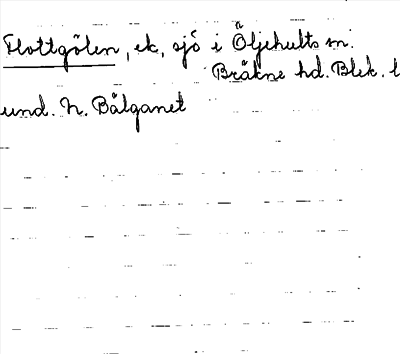 Flottgölen, ek, sjö i Öljehults sn.
Bräkne hd. Blek. l
und. N. Bålganet